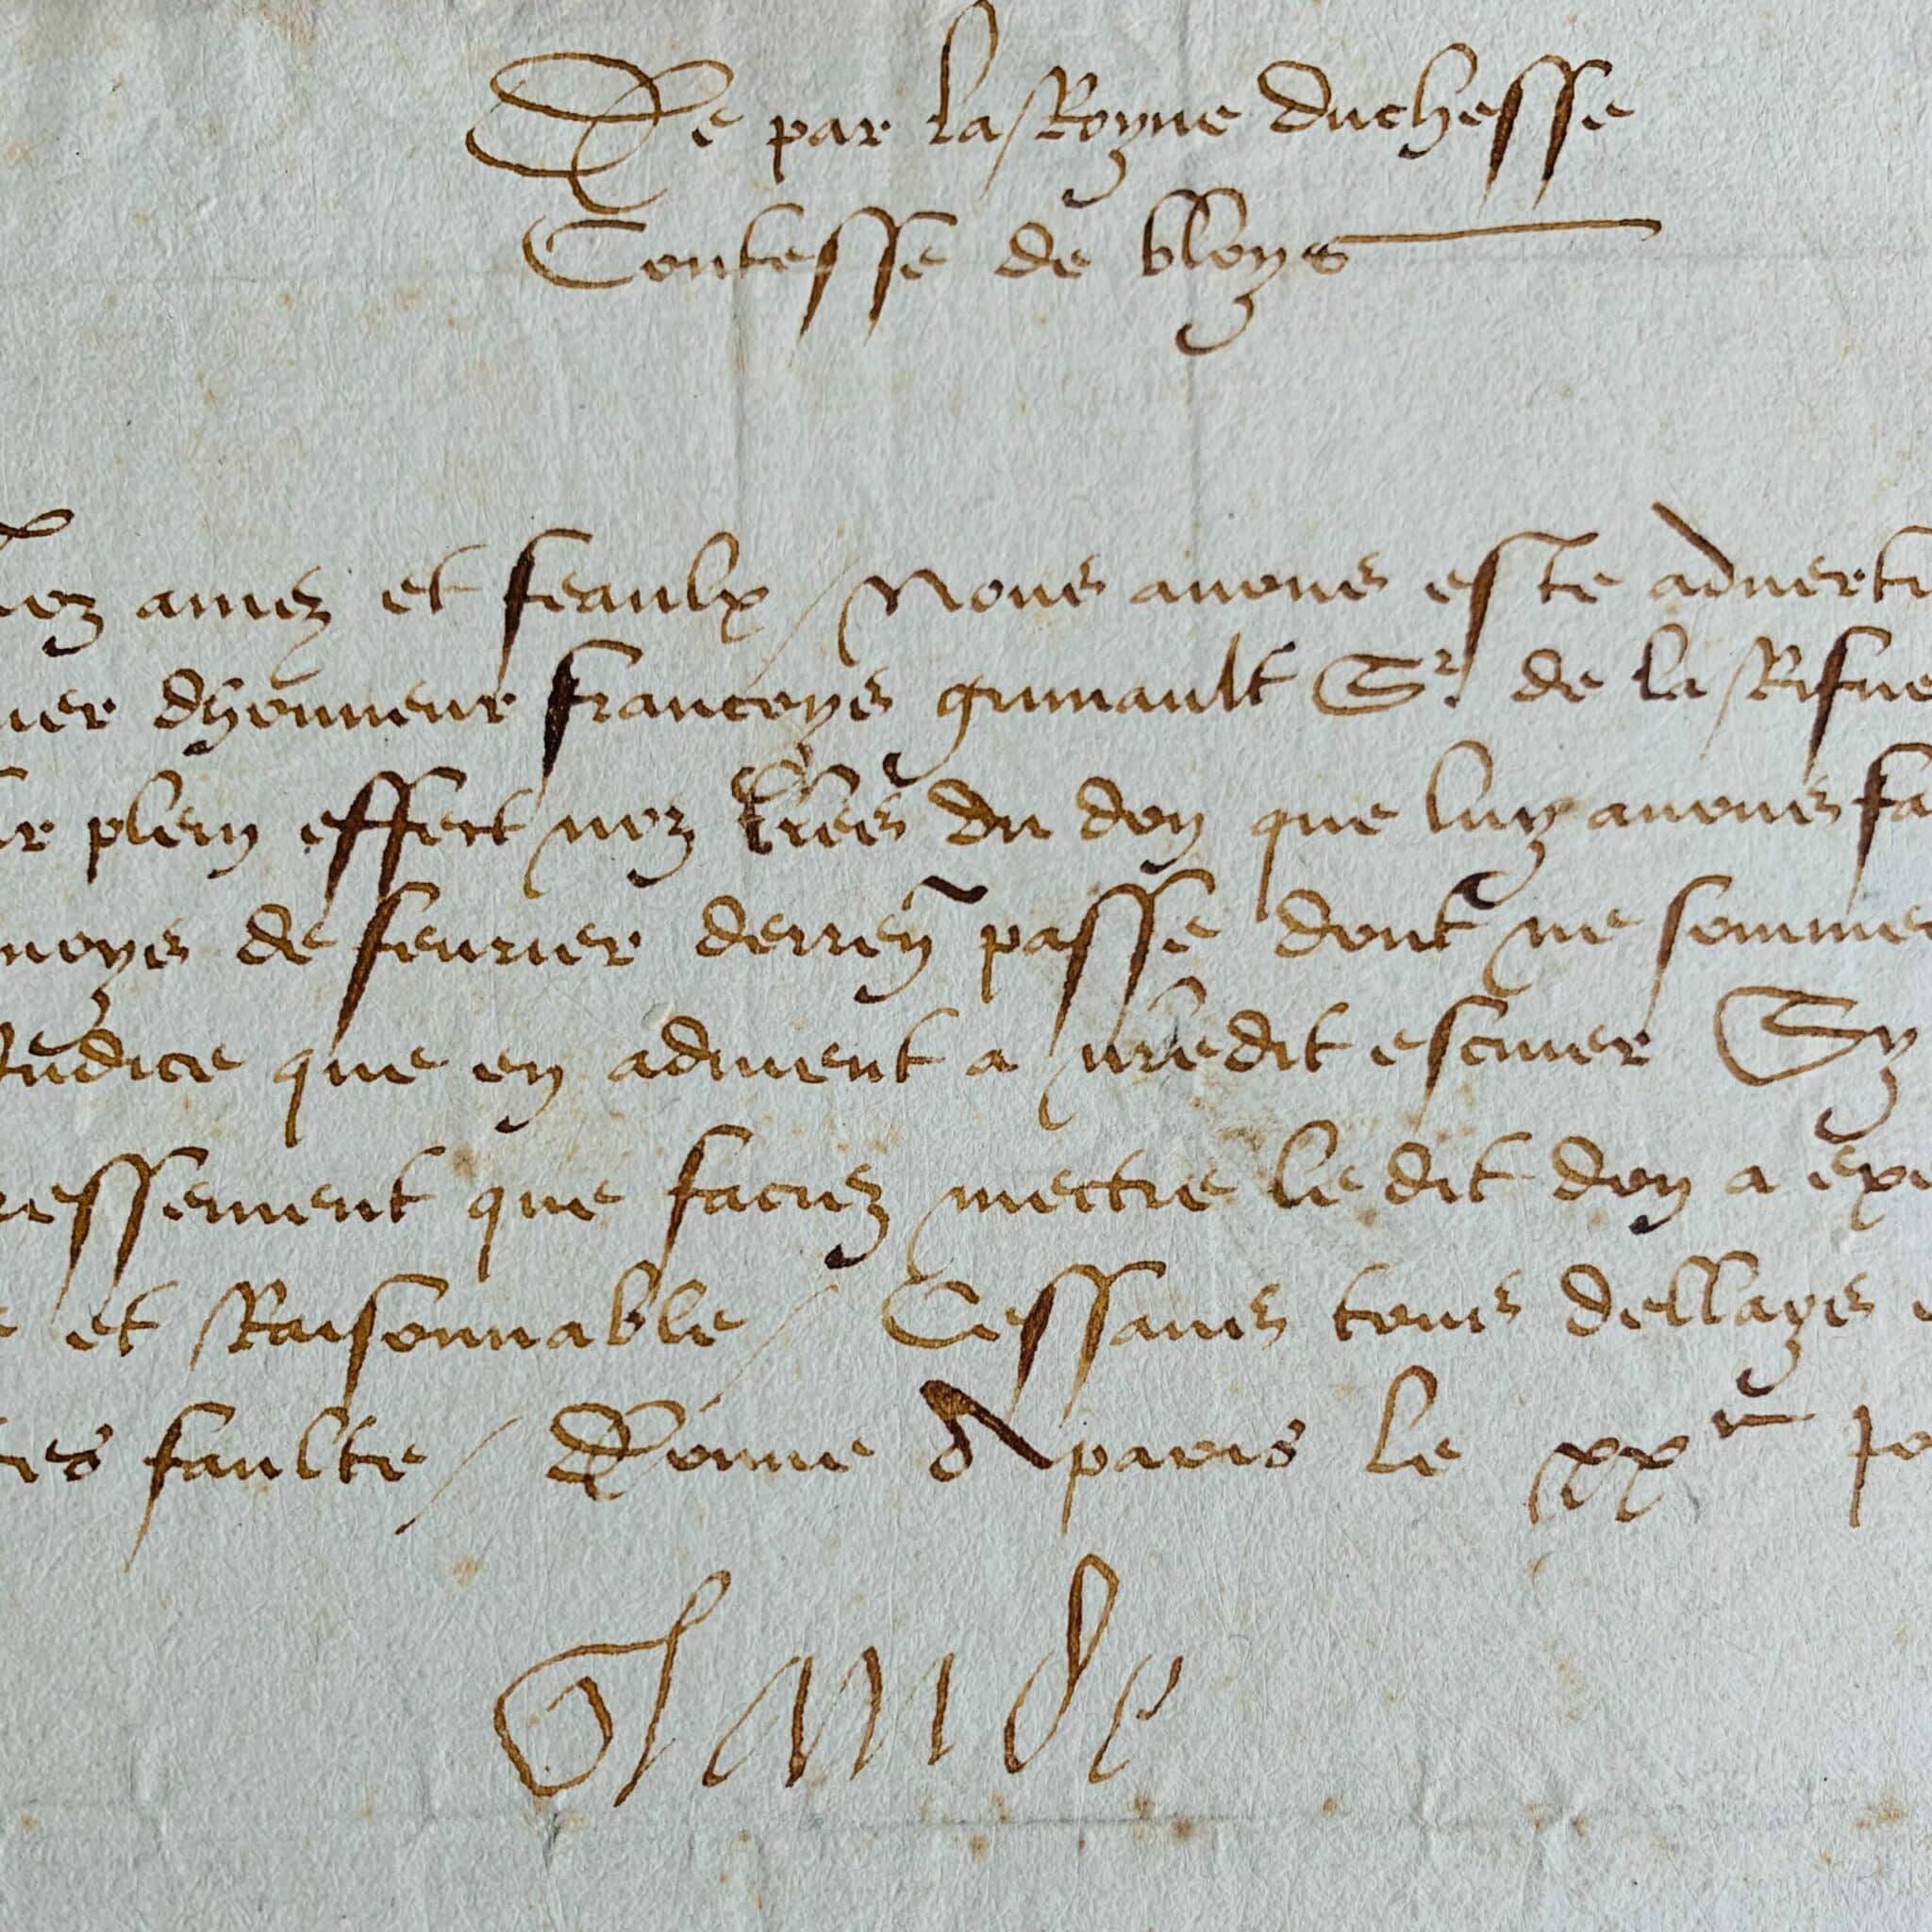 De par la Royne duchesse
Contesse de bloys
noz amez et feaulx / Nous avons este adverti
uier dhonneur francoys grimault Sr de la Risne
ir plein effect noz lres du don que luy avons fa
moys de fevrier derren passe dont ne sommes
judice que en advient a nredit escuier Sy
ressement que faciez mectre le dit don a exe
et Raisonnable / Cessans tous dellays e
res faulte / Donne A paris le xxe jo
Claude